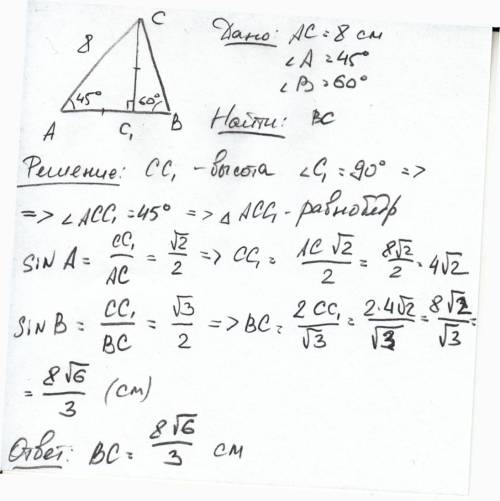 C
Дано: AC = 8 см
8
∠A = 45°
∠B = 60°
45° 60°
A C₁ B
Найти: BC
Решение: CC₁ - высота ∠C₁ = 90° =>
=> ∠ACC₁ = 45° => △ACC₁ - равнобедр
sin A = CC₁/AC = √2/2 => CC₁ = AC√2/2 = 8√2/2 = 4√2
sin B = CC₁/BC = √3/2 => BC = 2CC₁/√3 = 2·4√2/√3 = 8√2/√3 =
= 8√6/3 (см)
Ответ: BC = 8√6/3 см